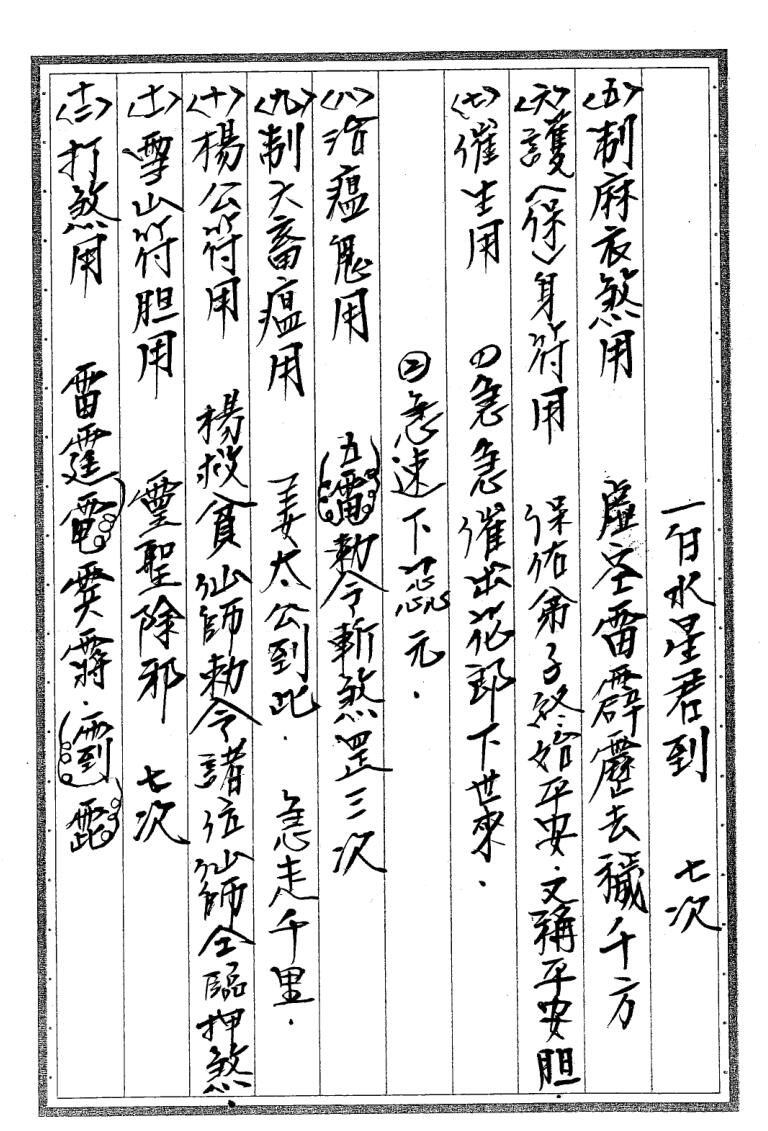 一白水星君到 七次
〈五〉制麻衣煞用 虛空雷霹靂去穢千方
〈六〉護(保)身符用 保佑弟子終始平安.又稱平安胆.
〈七〉催生用 (1)急急催出花郎下世來.
②急速下蕊元.
〈八〉治瘟鬼用 五(雷)勅令斬煞罡三次
〈九〉制六畜瘟用 姜太公到此. 急走千里.
〈十〉楊公符用 楊救貧仙師勅令諸位仙師仝臨押煞.
〈十一〉雪山符胆用 靈聖除邪 七次
〈十二〉打煞用 雷霆